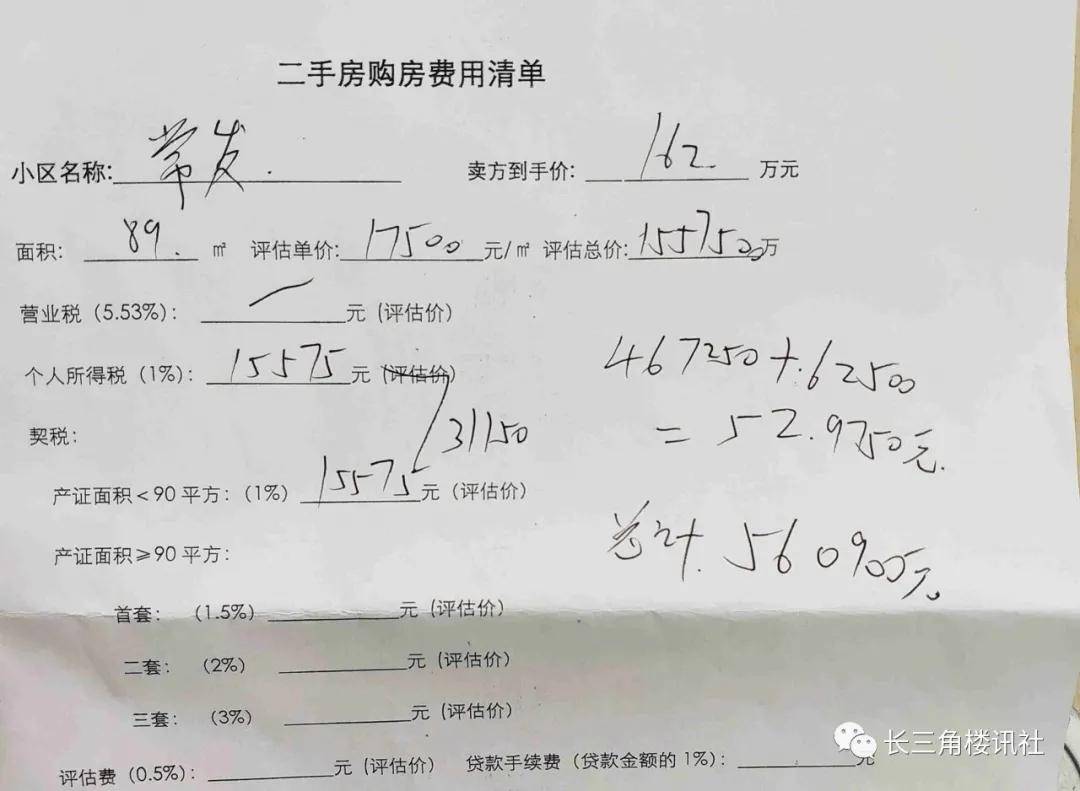 二手房购房费用清单
小区名称: 常发. 卖方到手价: 162. 万元
面积: 89. ㎡ 评估单价: 17500 元/㎡ 评估总价: 1557500 万
营业税（5.53%）: 元（评估价）
个人所得税（1%）: 15575 元（评估价）
467250+62500
=52.9750元.
契税: 31150
产证面积<90平方:（1%）15575 元（评估价）
产证面积≥90平方:
总计. 560900元.
首套:（1.5%） 元（评估价）
二套:（2%） 元（评估价）
三套:（3%） 元（评估价）
评估费（0.5%）: 元（评估价） 贷款手续费（贷款金额的1%）: 元
长三角楼讯社